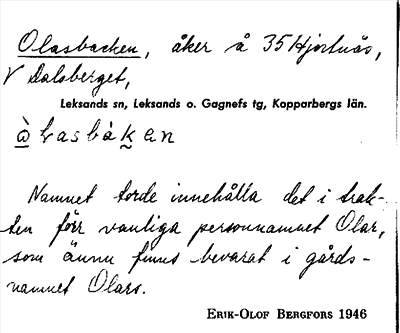 Olasbacken, åker å 35 Hjortnäs,
V Dalsberget,
Leksands sn, Leksands o. Gagnefs tg, Kopparbergs län.
Namnet torde innehålla det i trak-
ten förr vanliga personnamnet Olar,
som ännu finns bevarat i gårds-
namnet Olars.
ERIK-OLOF BERGFORS 1946